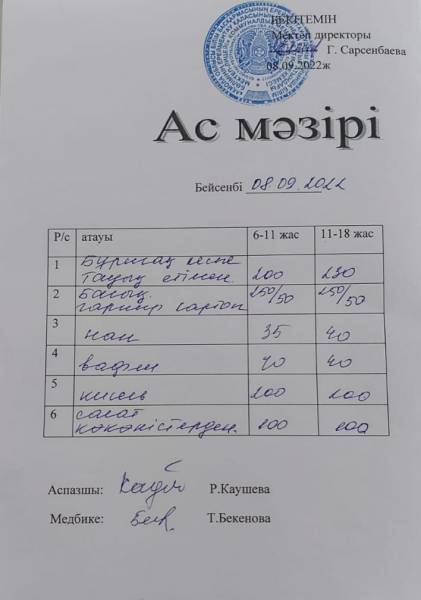 БЕКІТЕМІН
Мектеп директоры
Г. Сарсенбаева
08.09.2022ж
Ас мәзірі
Бейсенбі 08.09.2022
Р/с атауы 6-11 жас 11-18 жас
1 Бұршақ кеспе
тауық етімен 200 250
2 Балық
гарнир картоп 250/50 250/50
3 нан 35 40
4 вафли 40 40
5 кисель 200 200
6 салат
көкөністерден. 100 100
Аспазшы: Р.Каушева
Медбике: Т.Бекенова